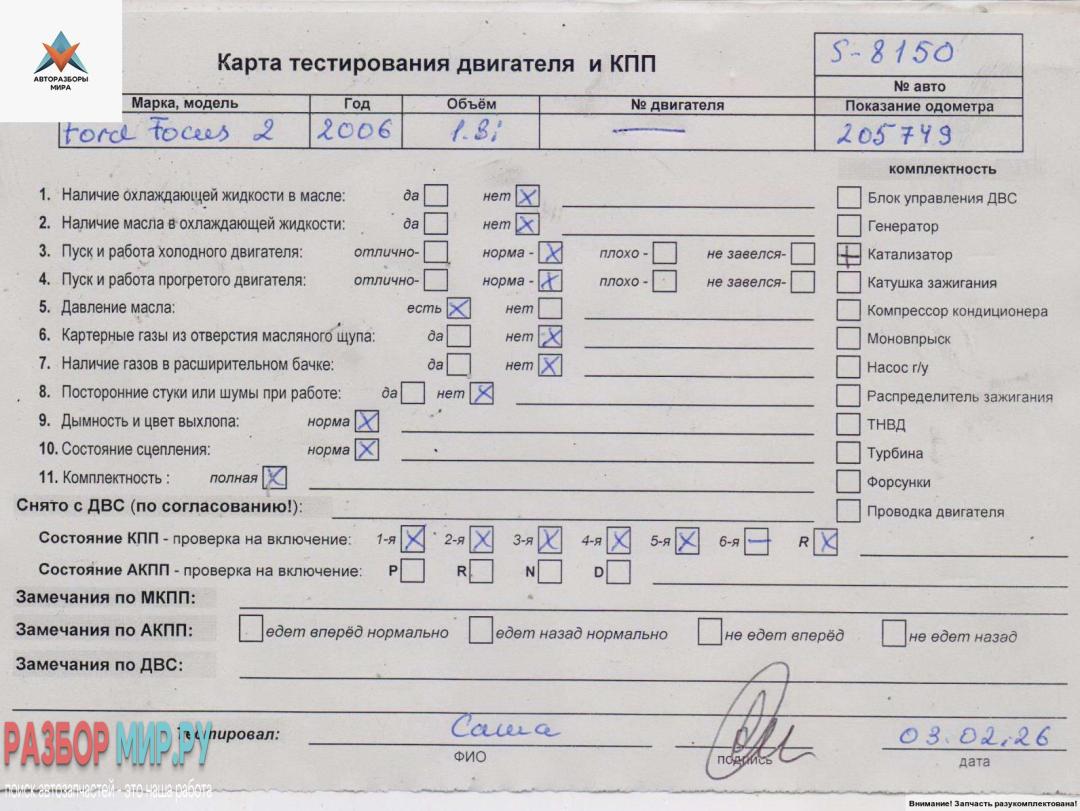 АВТОРАЗБОРЫ
МИРА
Карта тестирования двигателя и КПП
S-8150
№ авто
Марка, модель Год Объём № двигателя Показание одометра
Ford Focus 2 2006 1.8i — 205749
комплектность
1. Наличие охлаждающей жидкости в масле: да нет X
Блок управления ДВС
2. Наличие масла в охлаждающей жидкости: да нет X
Генератор
3. Пуск и работа холодного двигателя: отлично- норма - X плохо - не завелся-
+ Катализатор
4. Пуск и работа прогретого двигателя: отлично- норма - X плохо - не завелся-
Катушка зажигания
5. Давление масла: есть X нет
Компрессор кондиционера
6. Картерные газы из отверстия масляного щупа: да нет X
Моновпрыск
7. Наличие газов в расширительном бачке: да нет X
Насос г/у
8. Посторонние стуки или шумы при работе: да нет X
Распределитель зажигания
9. Дымность и цвет выхлопа: норма X
ТНВД
10. Состояние сцепления: норма X
Турбина
11. Комплектность : полная X
Форсунки
Снято с ДВС (по согласованию!):
Проводка двигателя
Состояние КПП - проверка на включение: 1-я X 2-я X 3-я X 4-я X 5-я X 6-я — R X
Состояние АКПП - проверка на включение: P R N D
Замечания по МКПП:
Замечания по АКПП: едет вперёд нормально едет назад нормально не едет вперёд не едет назад
Замечания по ДВС:
Тестировал: Саша 03.02.26
ФИО подпись дата
РАЗБОР МИР.РУ
поиск автозапчастей - это наша работа
Внимание! Запчасть разукомплектована!